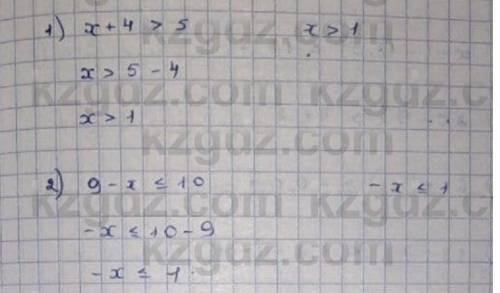 1) x + 4 > 5 x > 1
x > 5 - 4
x > 1
2) 9 - x ≤ 10 - x ≤ 1
-x ≤ 10 - 9
-x ≤ 1
kzgdz.com
kzgdz.com
kzgdz.com
kzgdz.com
kzgdz.com